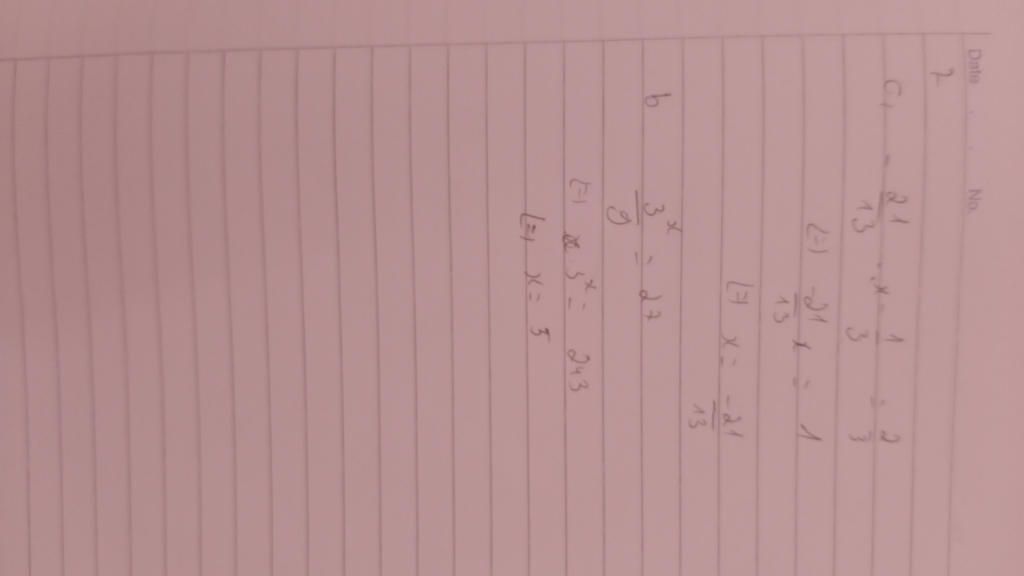 Date . . No.
7
c, - 21/13 . x - 1/3 = 2/3
(=) -21/13 x = 1
(=) x = -21/13
b 3^x/9 = 27
(=) 3^x = 243
(=) x = 5